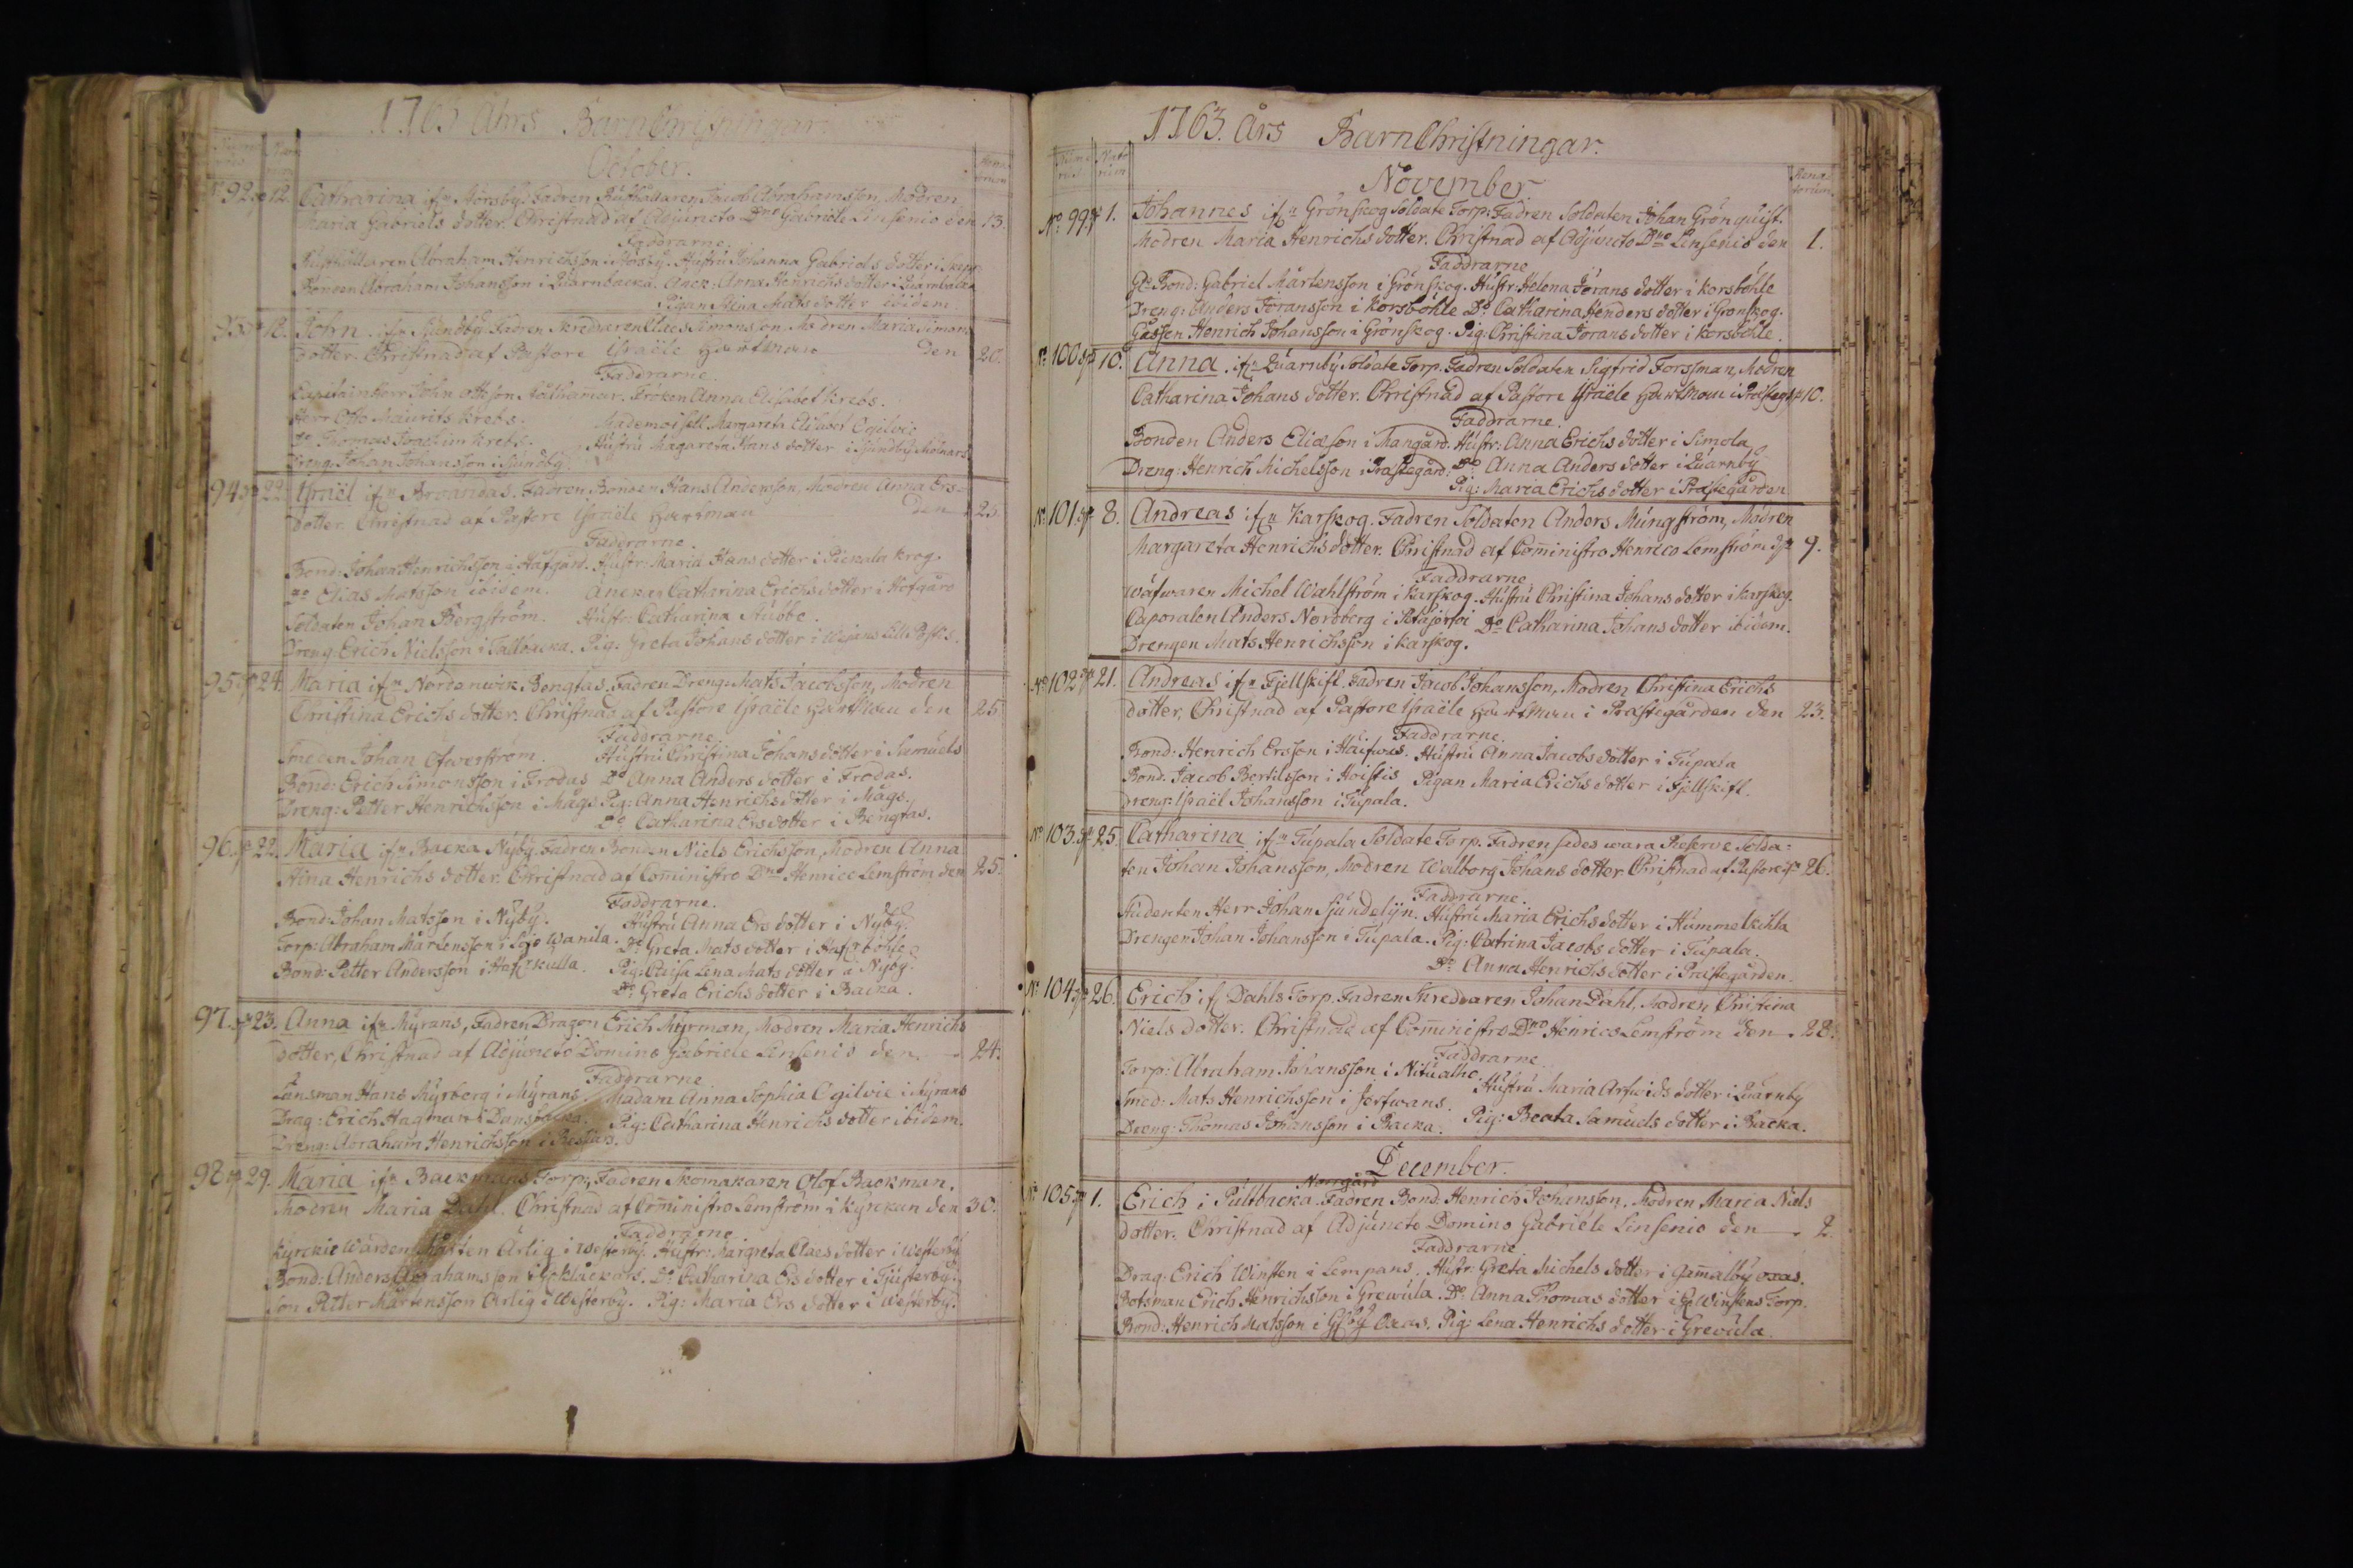 1763 Åhrs BarnChristningar
October.
No 92. 12. Catharina ifrn Störsby, Fadren Rusthållaren Jacob Abrahamsson, Modren
Maria Gabriels dotter. Christnad af Adjuncto Dno Gabriele Linsenio den 13.
Faddrarne.
Rusthållaren Abraham Henrichsson i Störsby. Hustru Johanna Gabriels dotter i
Bonden Abraham Johansson i Quarnbacka. Anna Henrichs dotter i Quarnbacka
Pigan Stina Mats dotter ibidem
93. 12. John ifrn Sjundby Fadren Skredaren Claes Simonsson. Modren Maria Simons
dotter. Christnad af Pastore Israële Hartman den 20.
Faddrarne.
Capitain Herr John Ottoson Fröken Anna Elisabet Krebs.
Herr Otto Maurits Krebs. Mademoisell Margareta Elisabet Ogilvie
Do Thomas Joachim Krebs. Hustru Magareta Hans dotter i Sjundby Molnars
Dreng: Johan Johansson i Sjundby.
94. 22. Israël ifrn Fadren Bonden Hans Andersson, Modren Anna Ers-
dotter. Christnad af Pastore Israële Hartman Den 25.
Faddrarne
Bond: Johan Henrichsson i Hafgård. Hustr: Maria Hans dotter i Pickala krog.
Do Elias Matsson ibidem. Änckan Catharina Erichs dotter i Hofgård
Soldaten Johan Bergström. Hustr: Catharina Stubbe.
Dreng: Erich Nielsson i Tallbacka. Pig. Greta Johans dotter i
95. 24. Maria ifrn Nordanwik Bengtas, Fadren Dreng: Mats Jacobsson, Modren
Christina Erichs dotter. Christnad af Pastore Israële Hartman den 25.
Faddrarne.
Smeden Johan Öfwerström. Hustru Christina Johans dotter i Samuels
Bond: Erich Simonsson i Frodas Do Anna Anders dotter i Frodas.
Dreng: Petter Henrichsson i Mågs. Pig: Anna Henrichs dotter i Mågs.
Do Catharina Ersdotter i Bengtas.
96. 22. Maria ifrn Backa Nyby. Fadren Bonden Niels Erichsson, Modren Anna
Stina Henrichs dotter. Christnad af Com̄inistro Dno Henrico Lemström den 25.
Faddrarne.
Bond: Johan Matsson i Nyby. Hustru Anna Ers dotter i Nyby.
Torp: Abraham Mårtensson i Wanila. Do Greta Mats dotter i
Bond: Petter Andersson i Pig: Caisa Lena Mats dotter i Nyby.
Do Greta Erichs dotter i Backa.
97. 23. Anna ifrn Myrans, Fadren Dragon Erich Myrman, Modren Maria Henrichs
dotter, Christnad af Adjuncto Domino Gabriele Linsenio den 24.
Faddrarne
Länsman Hans Myrberg i Myrans. Madam Anna Sophia Ogilvie i Myrans
Drag: Erich Hagman i Dansbacka. Pig: Catharina Henrichs dotter ibidem.
Dreng: Abraham Henrichsson i
98. 29. Maria ifrn Backmans Torp, Fadren Skomakaren Olof Backman.
Modren Maria Dahl. Christnad af Com̄inistro Lemström i Kyrckan den 30.
Faddrarne
Kyrckie Warden Mårten Ärlig i Westerby. Hustr: Margreta Claes dotter i Westerby
Bond: Anders Abrahamsson i Do Catharina Ersdotter i Tjusterby.
son Petter Mårtensson Ärlig i Westerby. Pig: Maria Ers dotter i Westerby.
1763. Års BarnChristningar.
November
No 99. 1. Johannes ifrn Grönskog Soldate Torp: Fadren Soldaten Johan Grönquist.
Modren Maria Henrichs dotter. Christnad af Adjuncto Dno Linsenio den 1.
Faddrarne
Gl. Bond: Gabriel Mårtensson i Grönskog. Hustr: Helena Jörans dotter i Korsböhle
Dreng: Anders Jöransson i Korsböhle Do Catharina Henders dotter i Grönskog.
Gossen Henrich Johansson i Grönskog. Pig: Christina Jörans dotter i Korsböhle.
No 100. 10. Anna. ifrn Quarnby Soldate Torp. Fadren Soldaten Sigfrid Forssman, Modren
Catharina Johans dotter. Christnad af Pastore Israële Hartman i Prästeg. 10.
Faddrarne.
Bonden Anders Eliæson i Mangård. Hustr: Anna Erichs dotter i Simola
Dreng: Henrich Michelsson i Prästegård: Do Anna Anders dotter i Quarnby
Pig: Maria Erichs dotter i Prästegården
No 101. 8. Andreas ifrn Karskog. Fadren Soldaten Anders Mungström, Modren
Margareta Henrichs dotter. Christnad af Com̄inistro Henrico Lemström 9.
Faddrarne
Wäfwaren Michel Wahlström i Karskog. Hustru Christina Johans dotter i Karskog.
Caporalen Anders Nordberg i Do Catharina Johans dotter ibidem.
Drengen Mats Henrichsson i Karskog.
No 102. 21. Andreas ifrn Fjellskifl. Fadren Jacob Johansson, Modren Christina Erichs
dotter, Christnad af Pastore Israële Hartman i Prästegården den 23.
Faddrarne.
Bond: Henrich Ersson i Hustru Anna Jacobs dotter i Tupala
Bond. Jacob Bertilsson i Hoistis Pigan Maria Erichs dotter i Fjellskifl.
Dreng: Israël Johansson i Tupala.
No 103. 25. Catharina ifrn Tupala Soldate Torp. Fadren sades wara Reserve Solda-
ten Johan Johansson, Modren Walborg Johans dotter Christnad af Pastore 26.
Faddrarne.
Studenten Herr Johan Sjundelijn. Hustru Maria Erichs dotter i Hummelsihla
Drengen Johan Johansson i Tupala. Pig: Catrina Jacobs dotter i Tupala.
Do Anna Henrichs dotter i Prästegården.
No 104. 26. Erich if Dahls Torp. Fadren Skredaren Johan Dahl, Modren Christina
Niels dotter. Christnad af Com̄inistro Dno Henrico Lemström den 28.
Faddrarne
Torp: Abraham Johansson i Nitualhe. Hustru Maria Arfwids dotter i Quarnby
Smed: Mats Henrichsson i Jerfwans. Pig: Beata Samuels dotter i Backa.
Dreng: Thomas Johansson i Backa.
December.
Norrgård
No 105. 1. Erich i Pultbacka. Fadren Bond. Henrich Johansson, Modren Maria Niels
dotter. Christnad af Adjuncto Domino Gabriele Linsenio den 2.
Faddrarne.
Drag: Erich Winsten i Lempans. Hustr: Greta Michels dotter i Gam̄alby oxas.
Botsman Erich Henrichsson i Grewula. Do Anna Thomas dotter i Winstens Torp.
Bond: Henrich Matsson i Oxas. Pig: Lena Henrichs dotter i Grevula.